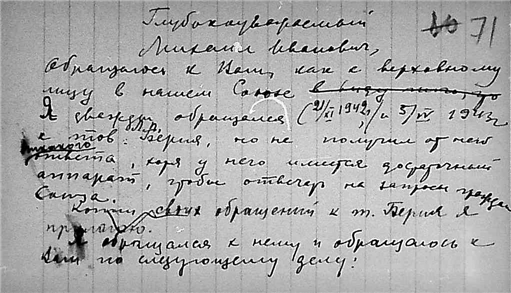 Глубокоуважаемый 71
Михаил Иванович,
обращаюсь к Вам, как к верховному
лицу в нашем Союзе
Я дважды обращался (2/XI 1942, и 5/IV 1943г
к тов. Берия, но не получил от него
никакого
ответа, хотя у него имеется достаточный
аппарат, чтобы отвечать на запросы граждан
Союза.
Копии своих обращений к т. Берия я
прилагаю.
Я обращался к нему и обращаюсь к
Вам по следующему делу: